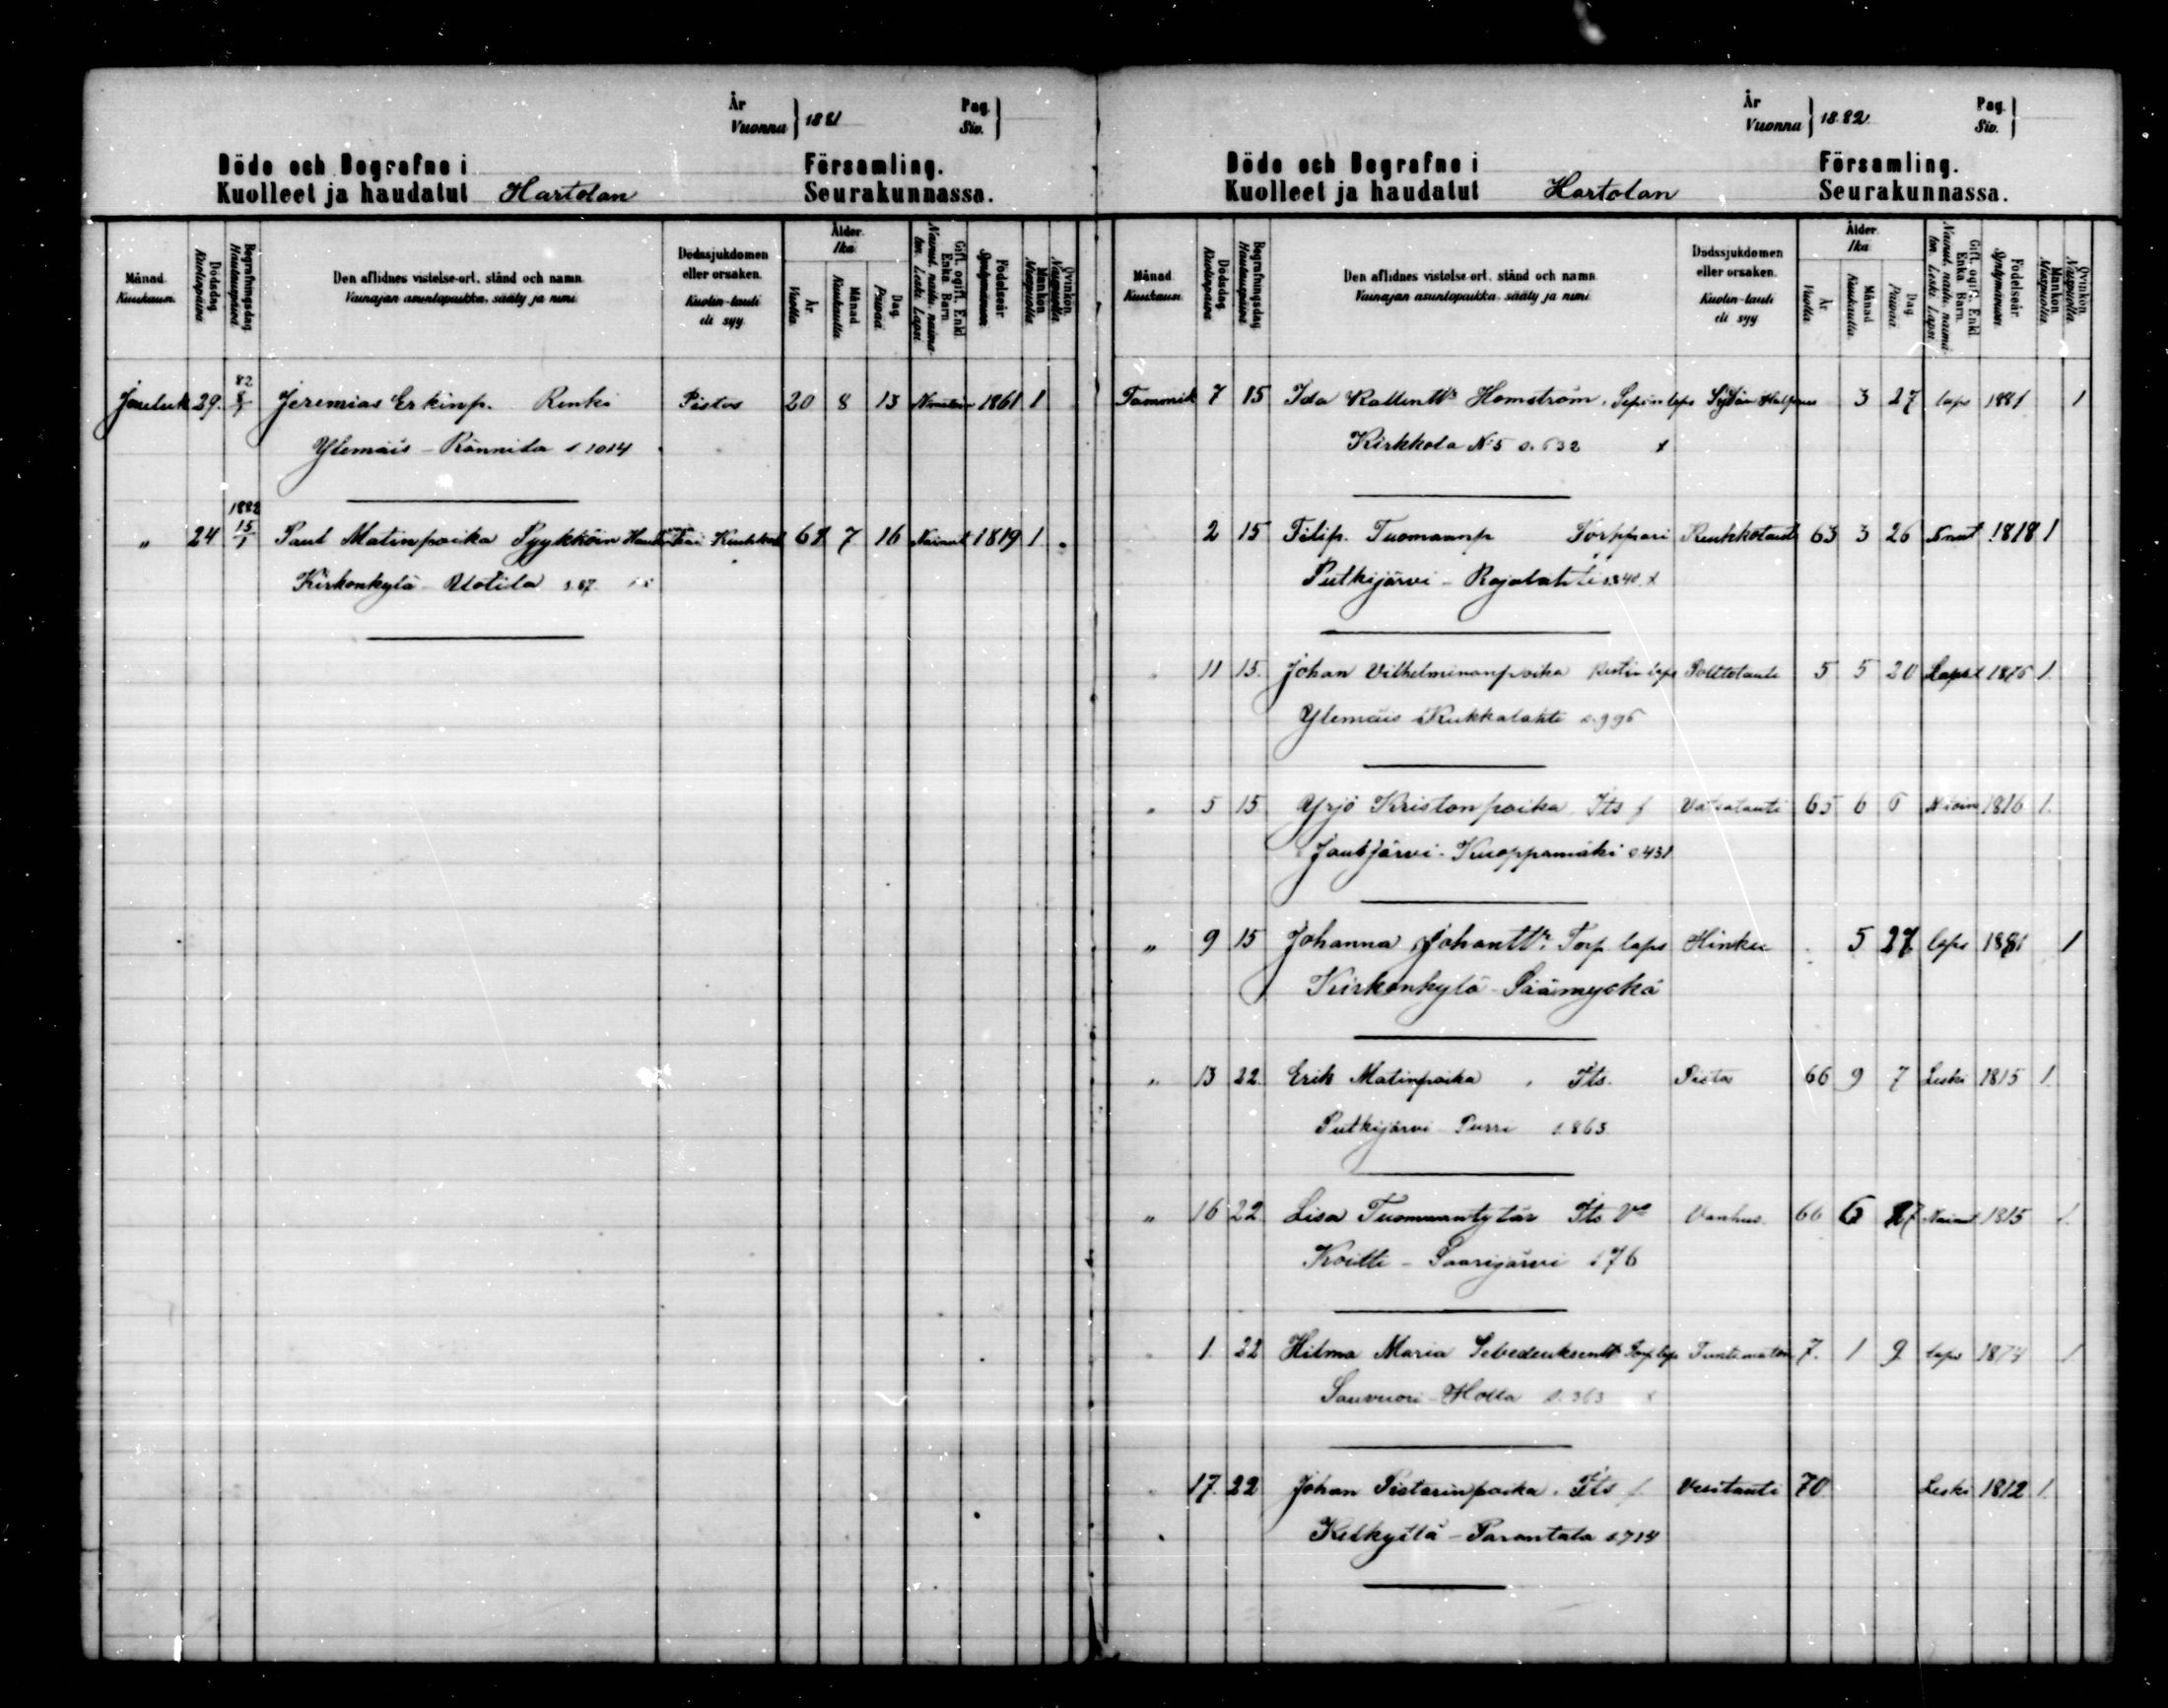 År
Vuonna } 1881
Pag.
Siv. }
Döde och Begrafne i Församling.
Kuolleet ja haudatut Hartolan Seurakunnassa.
Månad. Kuukausi.
Dödsdag. Kuolinpäivä
Begrafningsdag Hautauspäivä.
Den aflidnes vistelse-ort, stånd och namn.
Vainajan asuntopaikka, sääty ja nimi
Dödssjukdomen eller orsaken.
Kuolin-tauti eli syy
Ålder. Ikä
År. Vuotta
Månad. Kuukautta.
Dag. Päivää
Gift, ogift, Enkl. Enka Barn.
Nainut, naima- ton. Leski. Lapsi
Födelseår. Syntymävuosi
Mankön. Miespuolia
Qvinkön. Naispuolia
Jouluk 29. 82 8/1 Jeremias Erkinp. Renki Pistos 20 8 13 1861 1
Ylemäis - Rännilä s. 1014
„ 24 1882 15/1 Paul Matinpoika Pyykköin 7 16 Nainut 1819 1
Kirkonkylä - Ulotila s. 87
År
Vuonna } 1882
Pag.
Siv. }
Döde och Begrafne i Församling.
Kuolleet ja haudatut Hartolan Seurakunnassa.
Månad. Kuukausi.
Dödsdag. Kuolinpäivä
Begrafningsdag Hautauspäivä
Den aflidnes vistelse-ort, stånd och namn.
Vainajan asuntopaikka, sääty ja nimi
Dödssjukdomen eller orsaken.
Kuolin-tauti eli syy
Ålder. Ikä
År. Vuotta
Månad Kuukautta.
Dag. Päivää
Gift, ogif., Enkl. Enka Barn.
Nainut, naima- ton. Leski. Lapsi
Födelseår. Syntymävuosi
Mankön. Miespuolia.
Qvinkön. Naispuolia.
Tammik 7 15 Ida Kallentr Homström, Sepän laps 3 27 laps 1881 1
Kirkkola No 5 s. 632 x
2 15 Filip. Tuomaanp Torppari Keuhkotauti 63 3 26 1818 1
Putkijärvi - Rajalahti s. 840. x
„ 11 15. Johan Vilhelminanpoika laps Polttotauti 5 5 20 Lapsi 1876 1.
Ylemäis Kukkalahti s. 996
„ 5 15 Yrjö Kristonpoika, Its Vatsatauti 65 6 6 1816 1.
Joutsjärvi - Kuoppamäki s. 431
„ 9 15 Johanna Johanttr. Torp laps Hinku 5 27 laps 1881 1
Kirkonkylä - Säämyskä
„ 13 22. Erik Matinpoika, Its. Pistos 66 9 7 Leski 1815 1.
Putkijärvi - Purri s. 863
„ 16 22 Lisa Tuomaantytär Its Vo Vanhus 66 6 27 Nainut 1815 1.
Koitti - Saarijärvi s 76
„ 1. 22 Hilma Maria Sebedeuksentr Torp laps Tuntematon 7. 1 9 laps 1874 1
Sauvuori - Holla s. 363 x
„ 17. 22 Johan Pistarinpoika. Its Vesitauti 70 Leski 1812 1.
Kelkyttä - Parantala s. 714